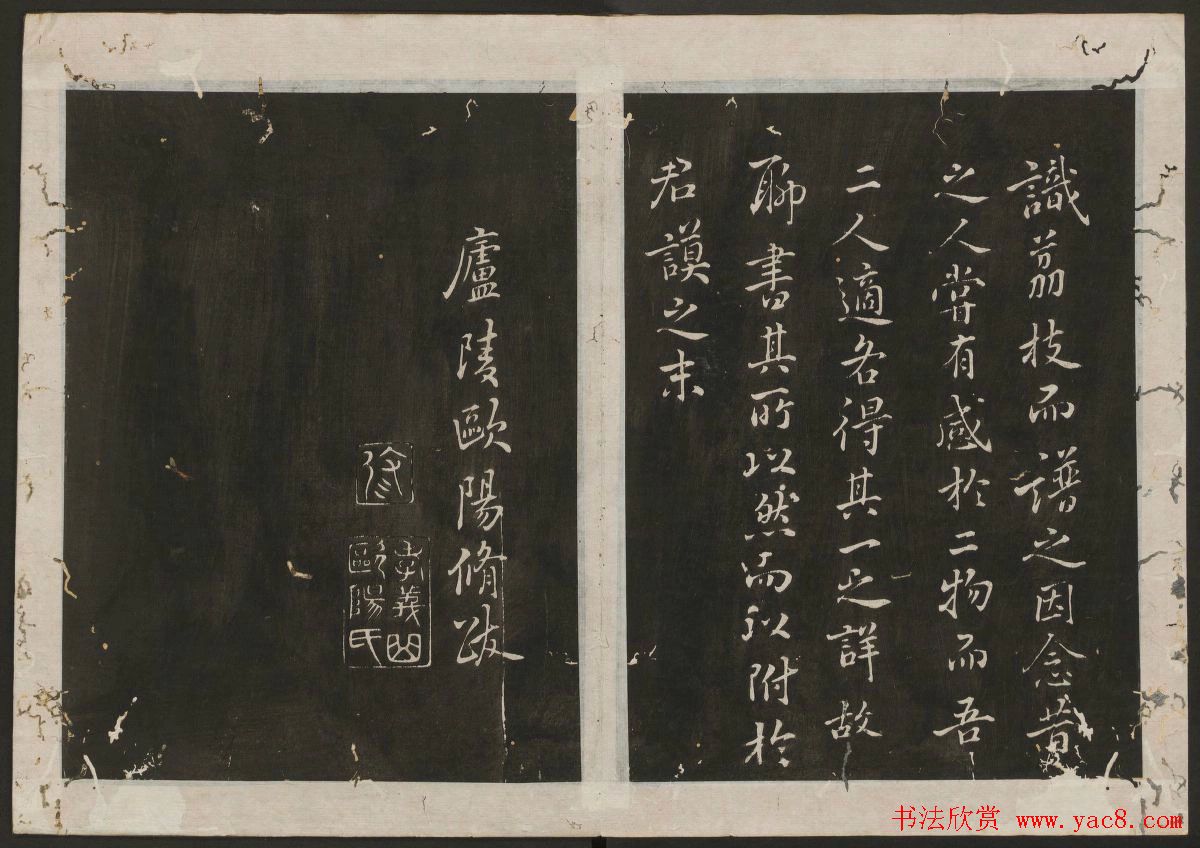 識荔枝而譜之因念昔
之人嘗有感於二物而吾
二人適各得其一之詳故
聊書其所以然而以附於
君謨之末
廬陵歐陽脩跋
修
歐陽氏
书法欣赏 www.yac8.com